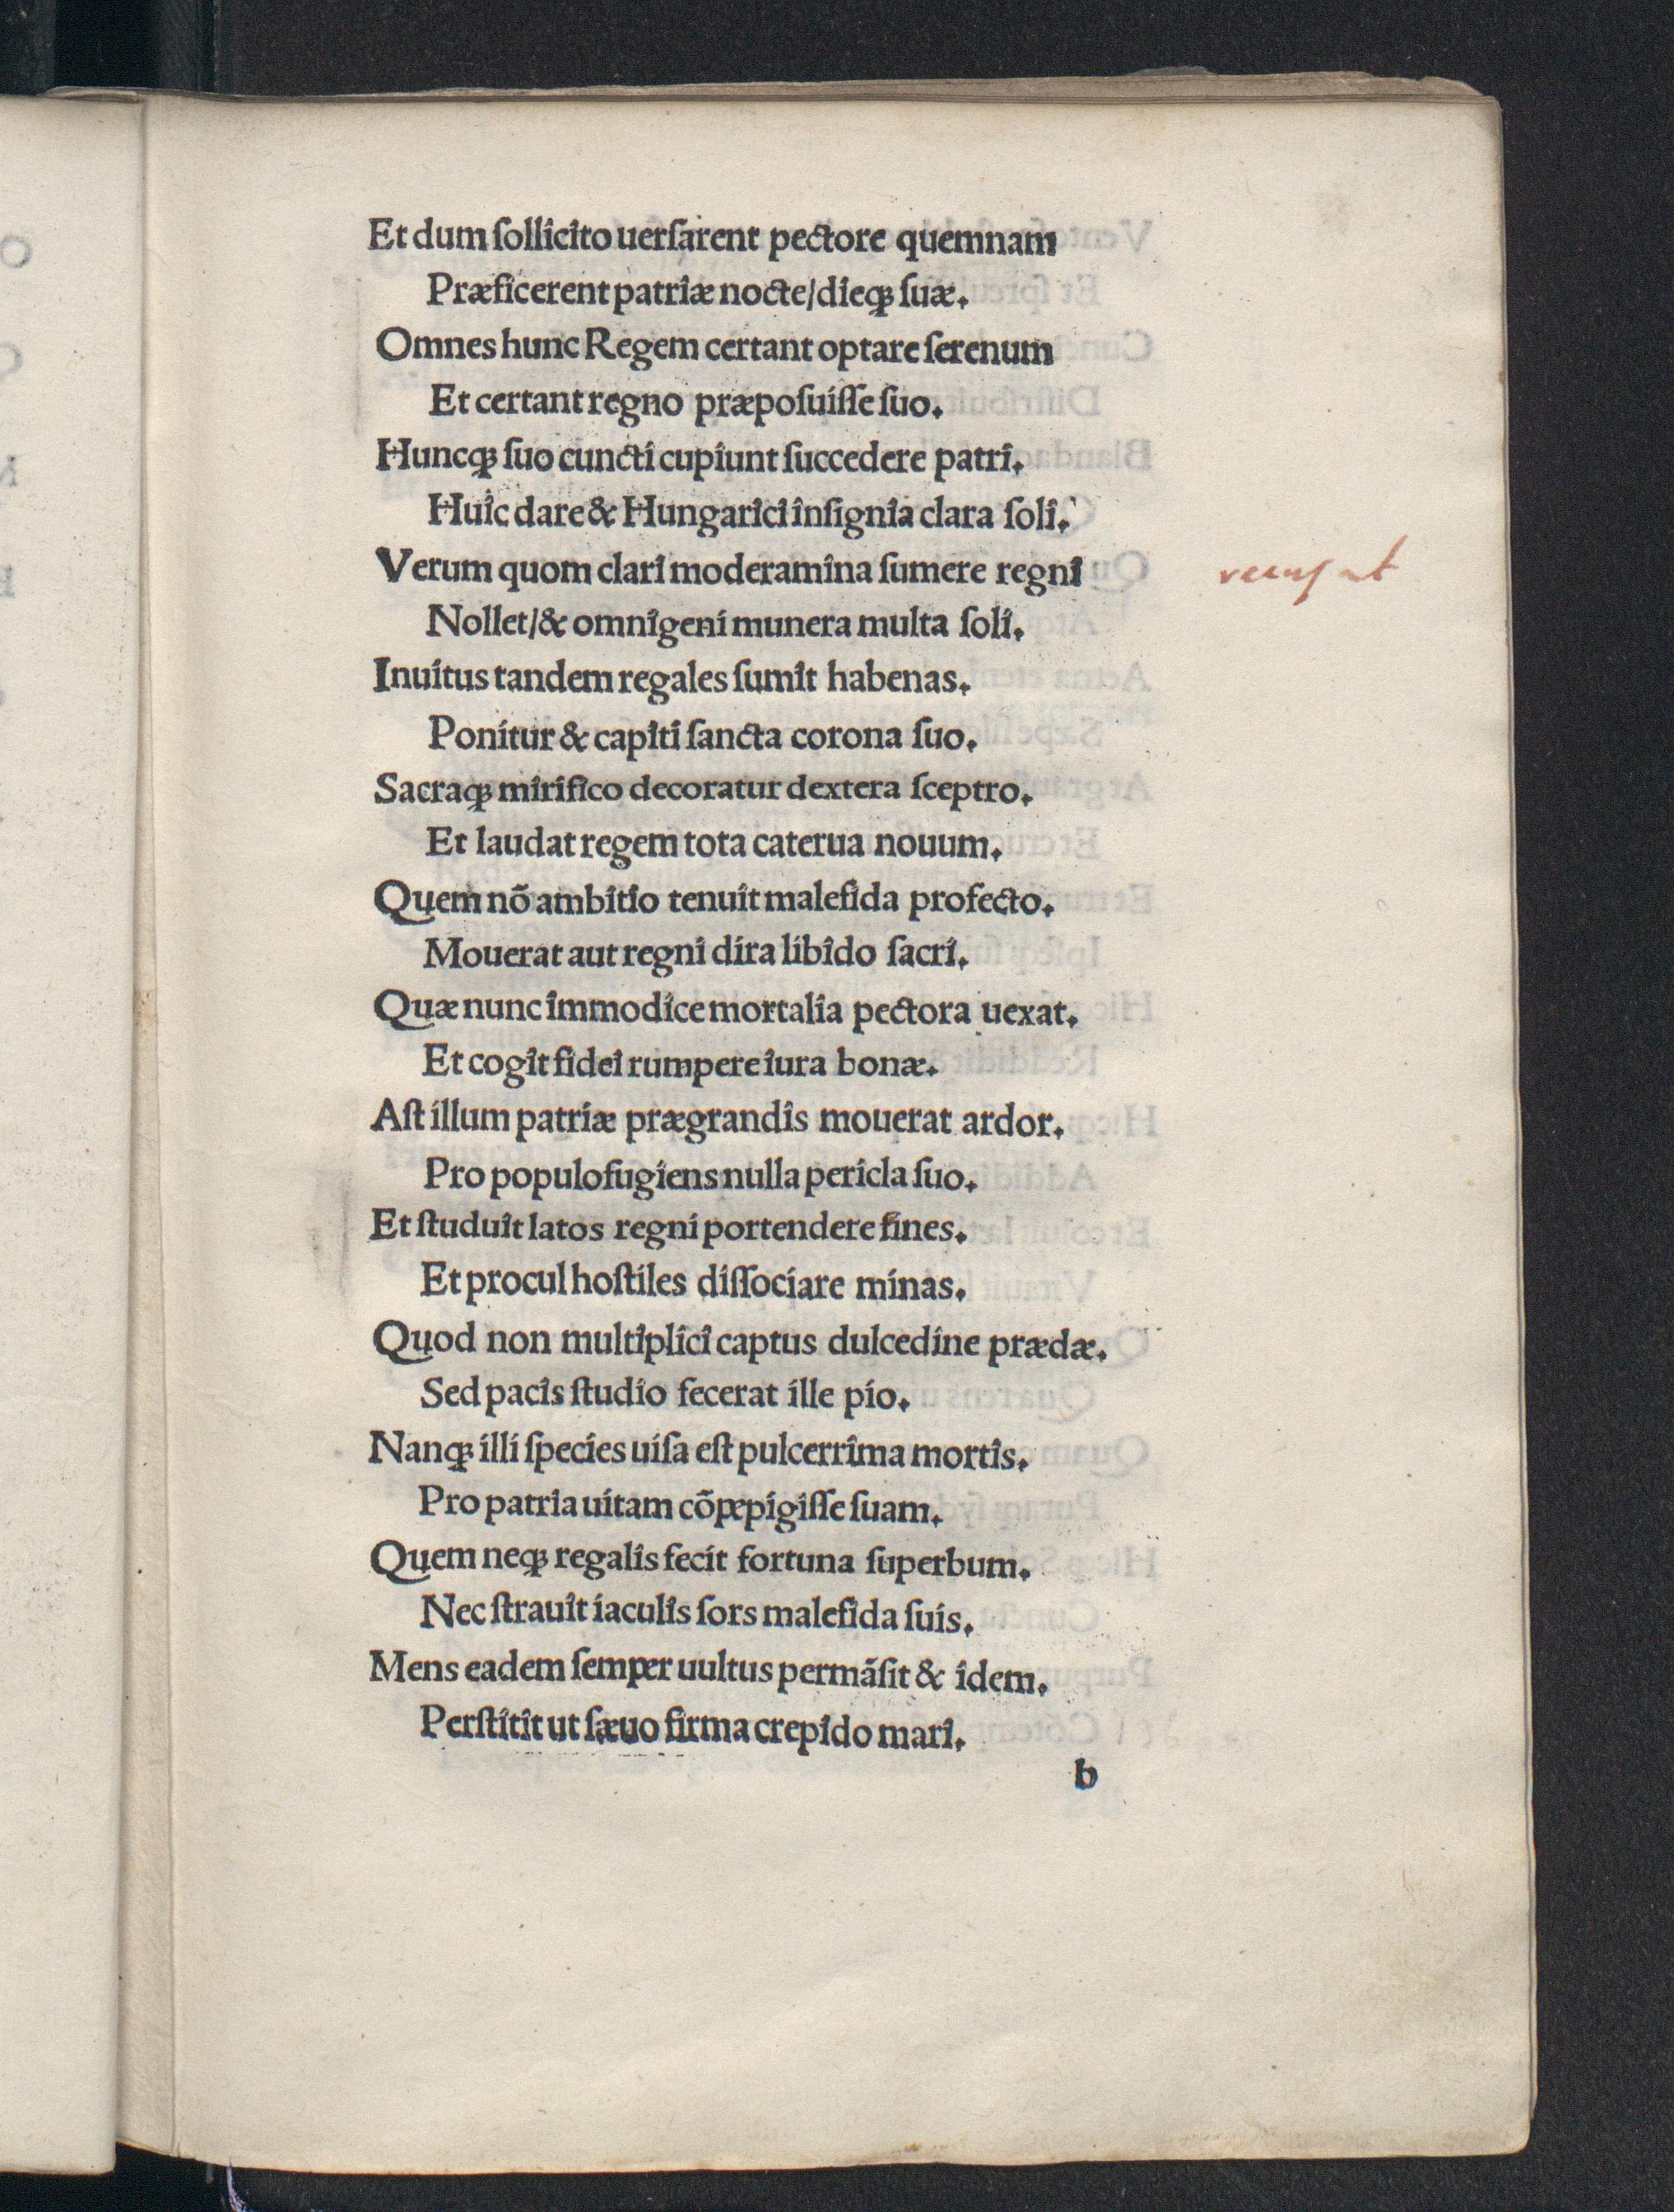 Et dum ſollicito uerſarent pectore quemnam
Præficerent patriæ nocte/dieqꝫ ſuæ.
Omnes hunc Regem certant optare ſerenum
Et certant regno præpoſuiſſe ſuo.
Huncqꝫ ſuo cuncti cupiunt ſuccedere patri.
Huic dare & Hungarici inſignia clara ſoli.
Verum quom clari moderamina ſumere regni
recuſat
Nollet/& omnigeni munera multa ſoli.
Inuitus tandem regales ſumit habenas.
Ponitur & capiti ſancta corona ſuo.
Sacraqꝫ mirifico decoratur dextera ſceptro.
Et laudat regem tota caterua nouum.
Quem nō ambitio tenuit malefida profecto.
Mouerat aut regni dira libido ſacri.
Quæ nunc immodice mortalia pectora uexat.
Et cogit fidei rumpere iura bonæ.
Aſt illum patriæ prægrandis mouerat ardor.
Pro populo fugiens nulla pericla ſuo.
Et ſtuduit latos regni portendere fines.
Et procul hoſtiles diſſociare minas.
Quod non multiplici captus dulcedine prædæ.
Sed pacis ſtudio fecerat ille pio.
Nanqꝫ illi ſpecies uiſa eſt pulcerrima mortis.
Pro patria uitam cōpepigiſſe ſuam.
Quem neqꝫ regalis fecit fortuna ſuperbum.
Nec ſtrauit iaculis ſors malefida ſuis.
Mens eadem ſemper uultus permāſit & idem.
Perſtitit ut ſæuo firma crepido mari.
b